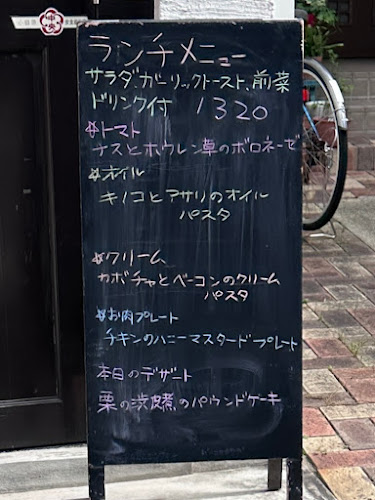 ランチメニュー
サラダ、ガーリックトースト、前菜
ドリンク付 1320
☆トマト
ナスとホウレン草のボロネーゼ
☆オイル
キノコとアサリのオイル
パスタ
☆クリーム
カボチャとベーコンのクリーム
パスタ
☆お肉プレート
チキンのハニーマスタードプレート
本日のデザート
栗の渋皮煮のパウンドケーキ